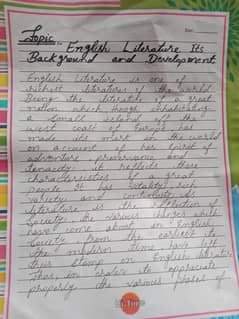 Topic
English Literature Its
Background and Development
English Literature is one of
richest literatures of the world.
Being the literature of a great
nation which though inhabiting
a small island off the
west coast of Europe has
made its mark in the world
on account of her spirit of
adventure, perseverance and
tenacity, it reflects these
characteristics of a great
people. It has vitality, rich
variety and continuity. As
literature is the reflection of
society, the various changes which
have come about in English
society, from the earliest to
the modern time, have left
their stamp on English literature
Thus in order to appreciate
properly the various phases of